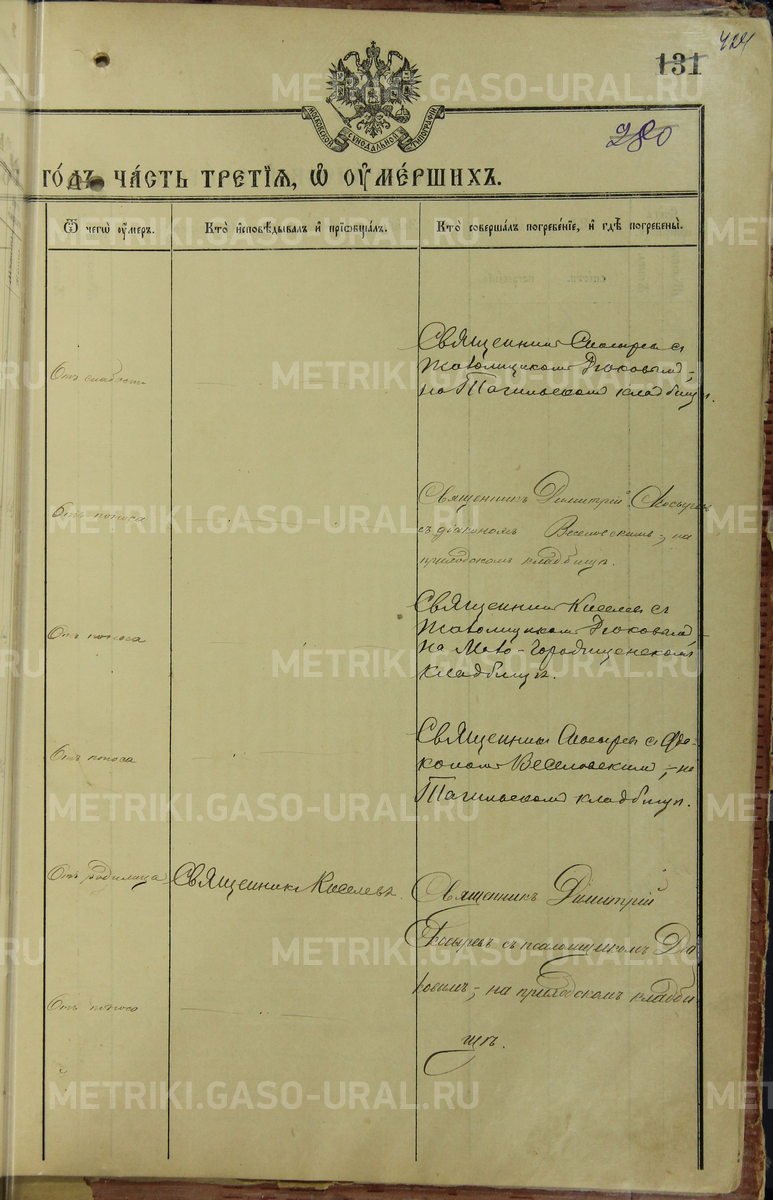 424
131
280
МОСКОВСКОЙ СѴНОДАЛЬНОЙ ТИПОГРАФIИ
ГО́ДЪ ЧА́СТЬ ТРЕТІ́Ѧ, Ѡ҆ ОУ҆МЕ́РШИХЪ.
Ѿ чегѡ̀ оу҆́меръ.
Кто̀ и҆сповѣ́дывалъ и҆ прїѡбща́лъ.
Кто̀ соверша́лъ погребе́нїе, и҆ гдѣ̀ погребены̀.
Отъ слабости
Священник Косырев с
псаломщиком Дюковым,
на Тагильском кладбищѣ.
Отъ поноса
Священникъ Димитрій Косыревъ
съ діакономъ Веселовскимъ, на
приходскомъ кладбищѣ.
Отъ поноса
Священник Киселев с
псаломщиком Дюковым,
на Мало-Городищенском
кладбищѣ.
Отъ поноса
Священник Косырев с діа-
коном Веселовским, на
Тагильском кладбищѣ.
Отъ родимца
Священник Киселевъ
Священникъ Димитрій
Косыревъ съ псаломщикомъ Дю-
ковымъ, на приходскомъ кладби
щѣ.
Отъ поноса
METRIKI.GASO-URAL.RU